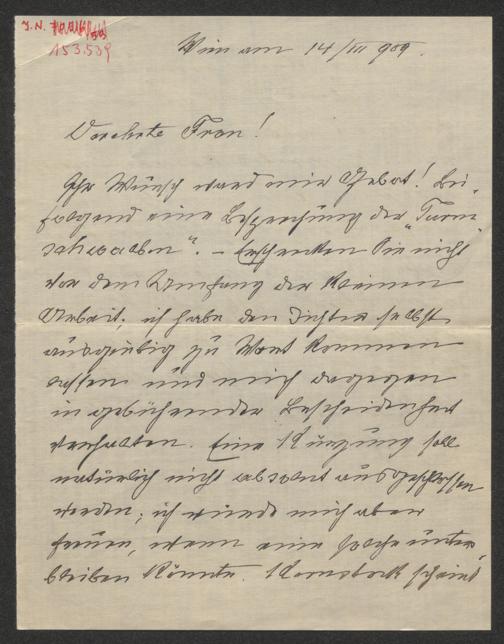 J. N.
153.539
Wien am 14/III 909.
Verehrte Frau!
Ihr Wunsch ward mir Gebot! Bei-
folgend eine Besprechung der "Turm-
schwalben". – Erschrecken Sie nicht
vor dem Umfang der kleinen
Arbeit; ich habe den Dichter selbst
ausgiebig zu Wort kommen
lassen und mich dagegen
in gebührender Bescheidenheit
verhalten. Eine Kürzung soll
natürlich nicht absolut ausgeschlossen
werden; ich würde mich aber
freuen, wenn eine solche unter-
bleiben könnte. Kernstock scheint